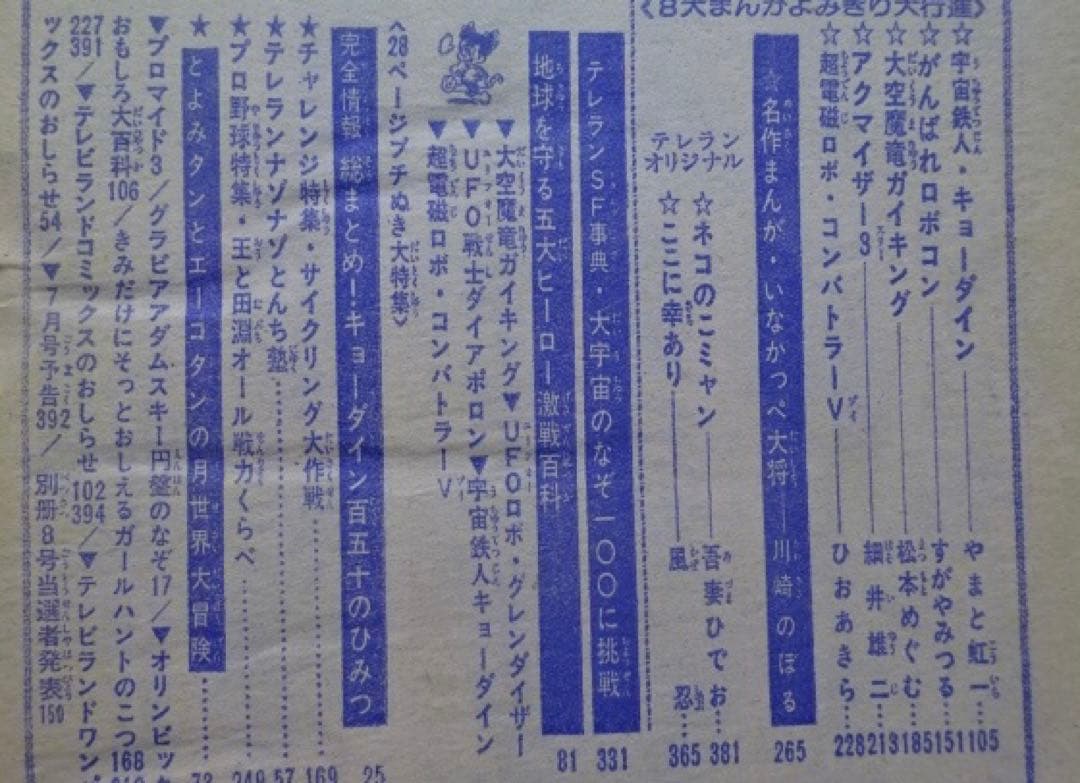 《8大まんがよみきり大行進》
☆宇宙鉄人・キョーダイン やまと虹一 105
☆がんばれロボコン すがやみつる 151
☆大空魔竜ガイキング 松本めぐむ 185
☆アクマイザー3 細井雄二 213
☆超電磁ロボ・コンバトラーV ひおあきら 228
☆名作まんが・いなかっぺ大将 川崎のぼる 265
テレランオリジナル
☆ネコのこミャン 吾妻ひでお 381
☆ここに幸あり 風忍 365
テレランSF事典・大宇宙のなぞ一〇〇に挑戦 331
地球を守る五大ヒーロー激戦百科 81
▼大空魔竜ガイキング▼UFOロボ・グレンダイザー
▼UFO戦士ダイアポロン▼宇宙鉄人キョーダイン
▼超電磁ロボ・コンバトラーV
〈28ページブチぬき大特集〉
完全情報 総まとめ!キョーダイン百五十のひみつ 25
★チャレンジ特集・サイクリング大作戦 169
★テレランナゾナゾとんち塾 57
★プロ野球特集・王と田淵オール戦力くらべ 249
★とよみタンとエーコタンの月世界大冒険 73
▼ブロマイド3/グラビアアダムスキー円盤のなぞ17/▼オリンピック
おもしろ大百科106/きみだけにそっとおしえるガールハントのこつ168
227 391/▼テレビランドコミックスのおしらせ102 394/▼テレビランドワッペ
ックスのおしらせ54/▼7月号予告392/別冊8号当選者発表150